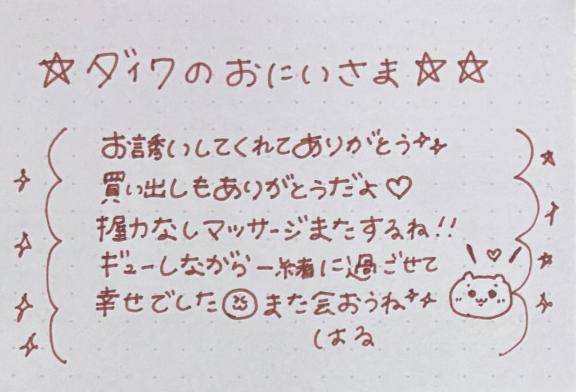 ☆ダイワのおにいさま☆☆
お誘いしてくれてありがとう✨
買い出しもありがとうだよ♡
握力なしマッサージまたするね!!
ギューしながら一緒に過ごせて
幸せでした また会おうね✨
はる